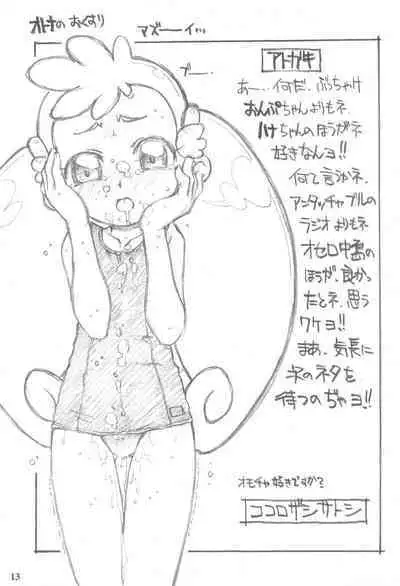 オトナの おくすり
マズーーイ…
ブー…
アトガキ
あー…何だ、ぶっちゃけ
おんぷちゃんよりもネ、
ハナちゃんのほうがネ
好きなんヨ!!
何て言うかネ、
アンタッチャブルの
ラジオよりもネ
オセロ中島の
ほうが、良かっ
たとネ、思う
ワケヨ!!
まあ、気長に
次のネタを
待つのぢゃヨ!!
オモチャ好きですか?
ココロザシサトシ
13